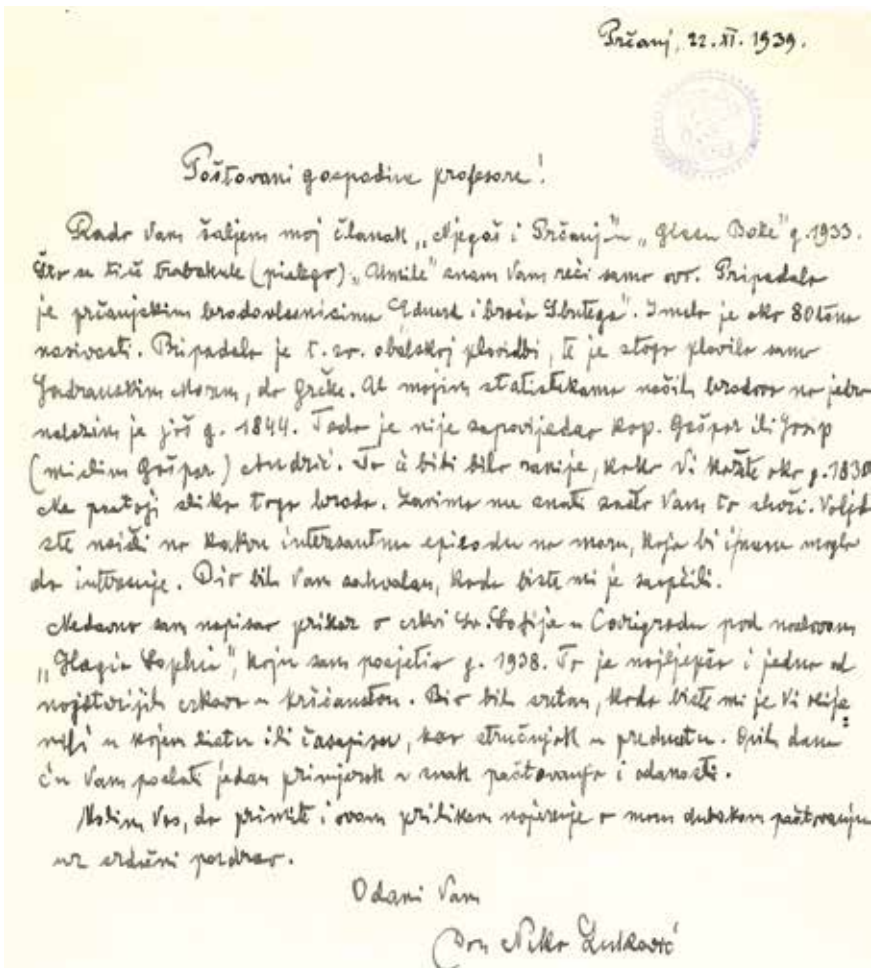 Prčanj, 22. XI. 1939.
Poštovani gospodine profesore!
Rado Vam šaljem moj članak „Njegoš i Prčanj" u „Glasu Boke" g. 1933.
Što se tiče trabakule (pielego) „Umile" znam Vam reći samo ovo. Pripadala
je prčanjskim brodovlasnicima „Eduard i braća Sbutega". Imala je oko 80 tona
nosivosti. Pripadala je t. zv. obalskoj plovidbi, te je stoga plovila samo
Jadranskim Morem, do Grčke. U mojim statistikama naših brodova na jedra
nalazim je još g. 1844. Tada je nije zapovijedao kap. Gašpar ili Josip
(mislim Gašpar) Andrić. To će biti bilo ranije, kako Vi kažete oko g. 1830
Ne postoji slika toga broda. Zanima me znati zašto Vam to služi. Valjda
ste naišli na kakvu interesantnu epizodu na moru, koja bi i mene mogla
da interesuje. Bio bih Vam zahvalan, kada biste mi je saopćili.
Nedavno sam napisao prikaz o crkvi Sv. Sofije u Carigradu pod naslovom
„Hagia Sophia", koju sam posjetio g. 1938. To je najljepša i jedna od
najstarijih crkava u kršćanstvu. Bio bih sretan, kada biste mi je Vi ocije=
nili u kojem listu ili časopisu, kao stručnjak u predmetu. Ovih dana
ću Vam poslati jedan primjerak u znak poštovanja i odanosti.
Molim Vas, da primite i ovom prilikom uvjerenje o mom dubokom poštovanju
uz srdačni pozdrav.
Odani Vam
Don Niko Luković